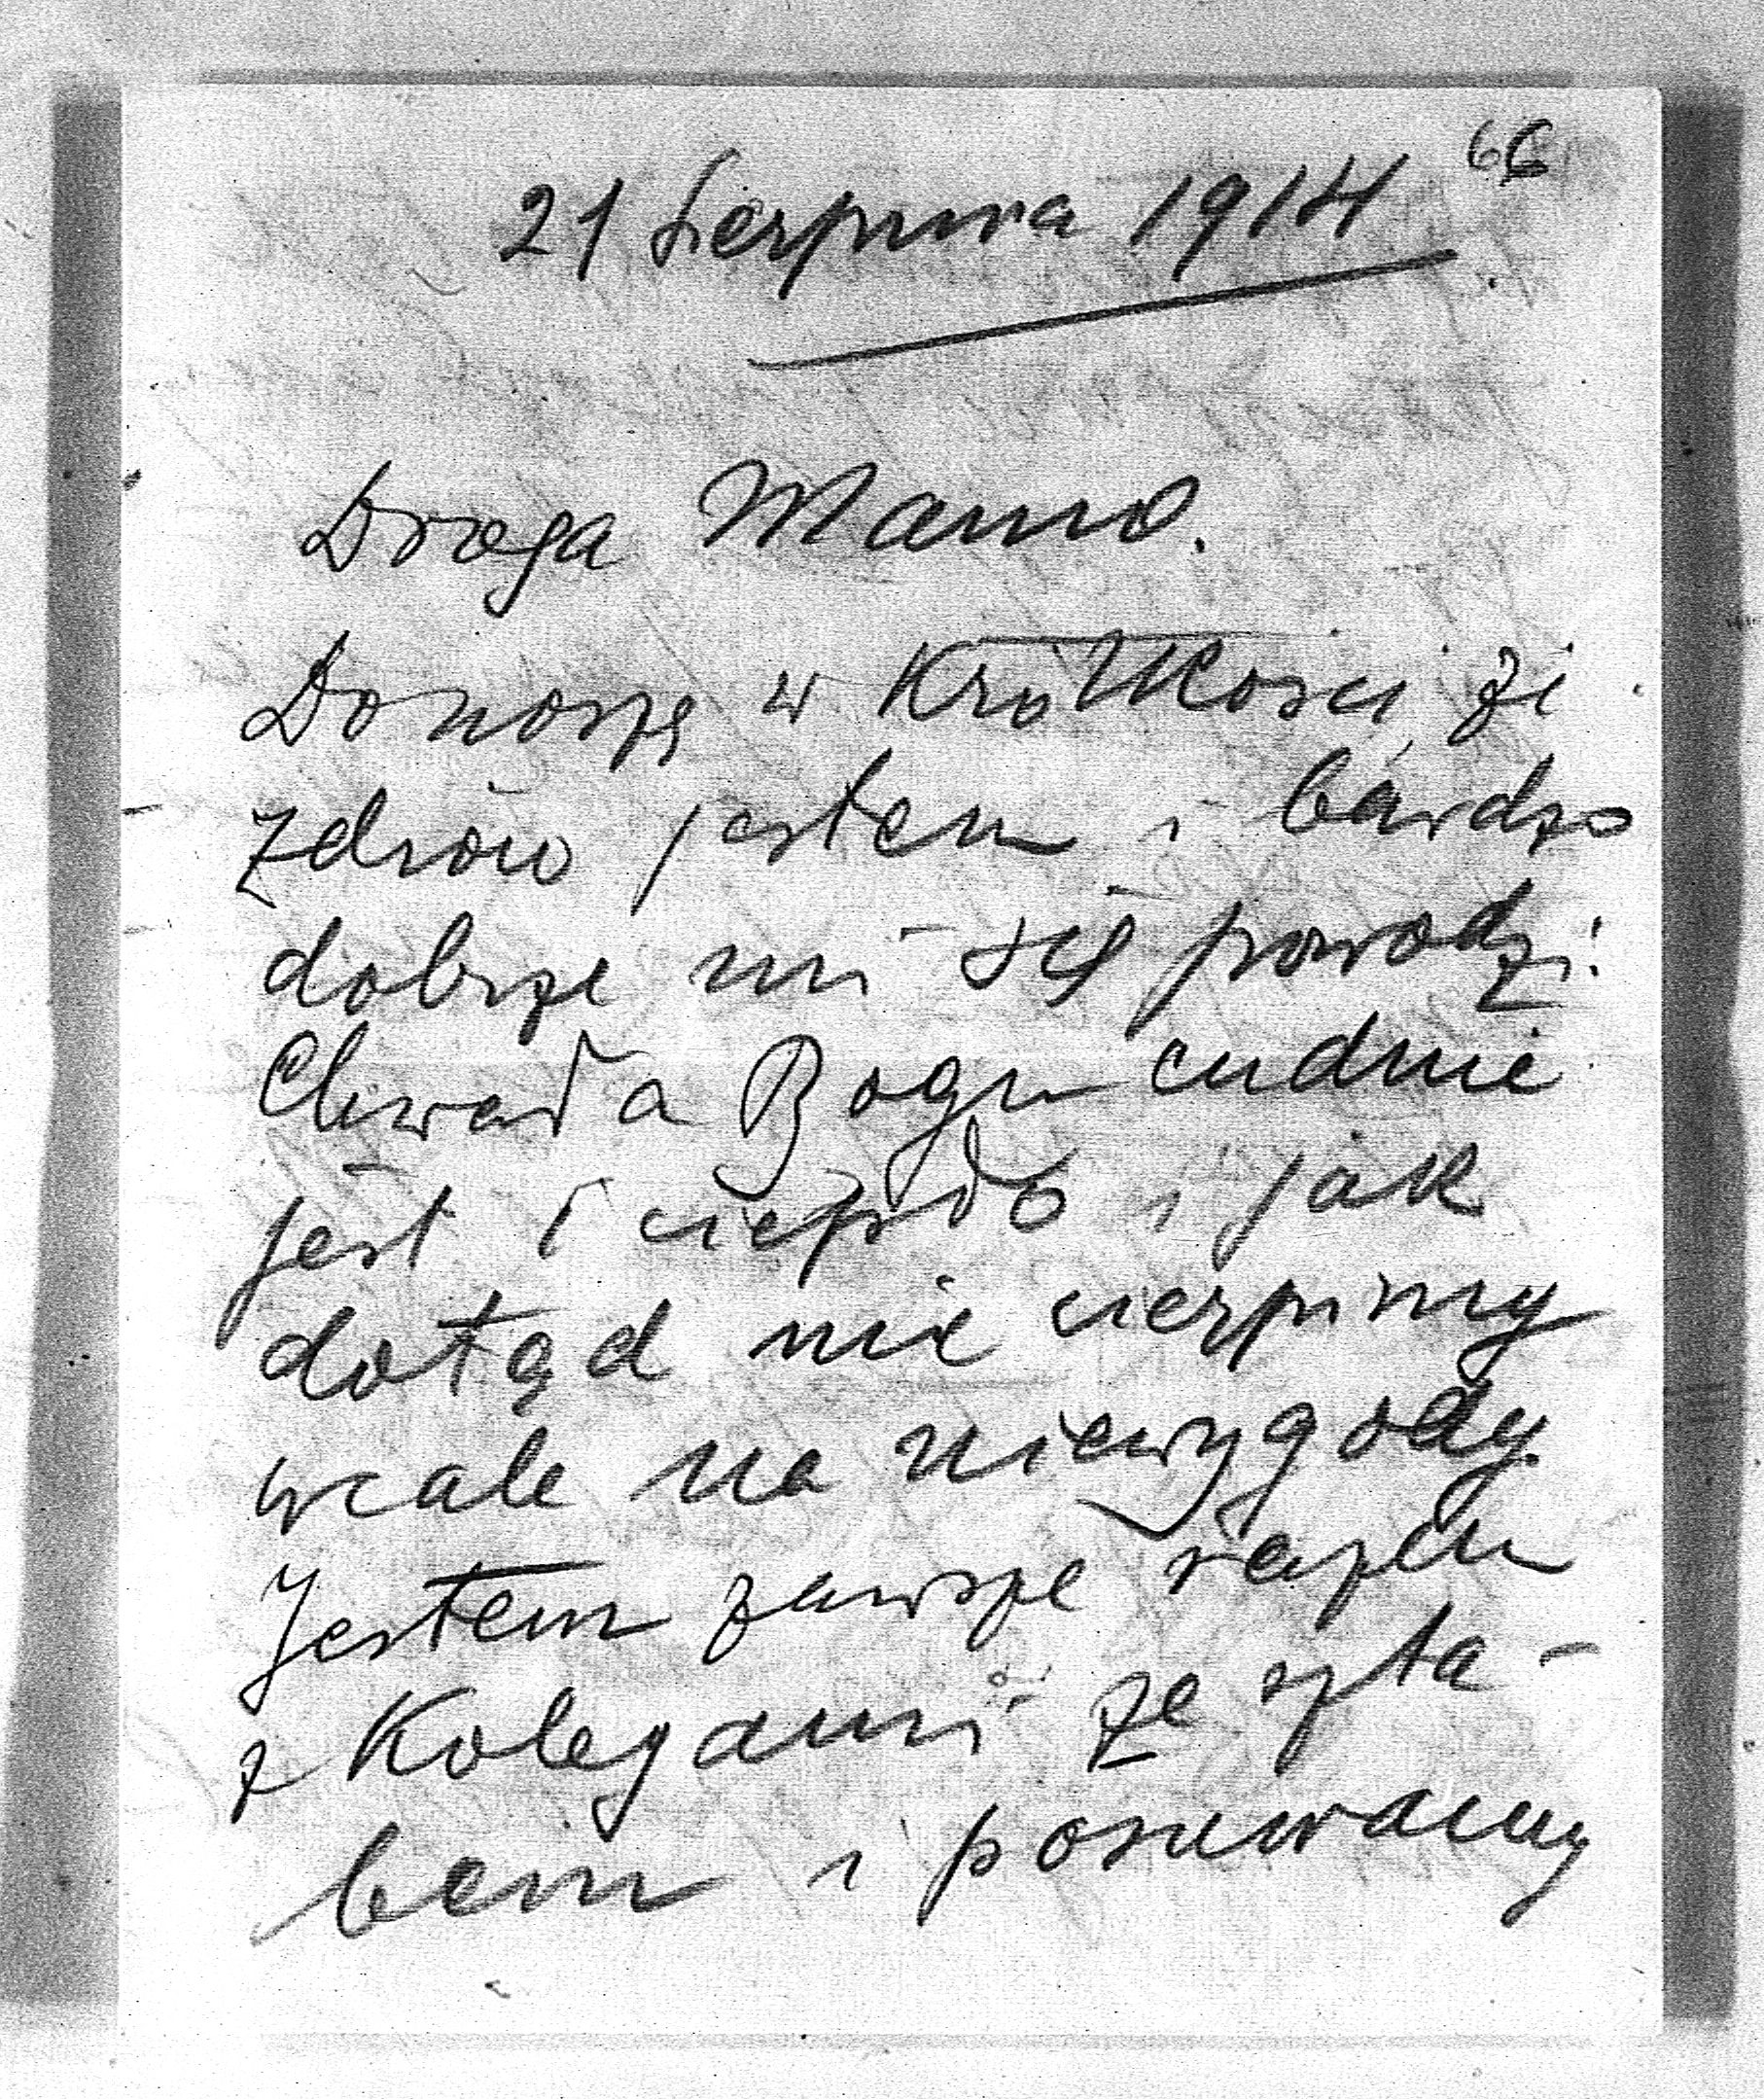 66
21 Sierpnia 1914
Droga Mamo.
Donoszę w Krótkości że
zdrów jestem i bardzo
dobrze mi się powodzi.
Chwała Bogu cudnie
jest i ciepło i jak
dotąd nie cierpimy
wcale na niewygody.
Jestem zawsze razem
z Kolegami ze szta-
bem i posuwamy